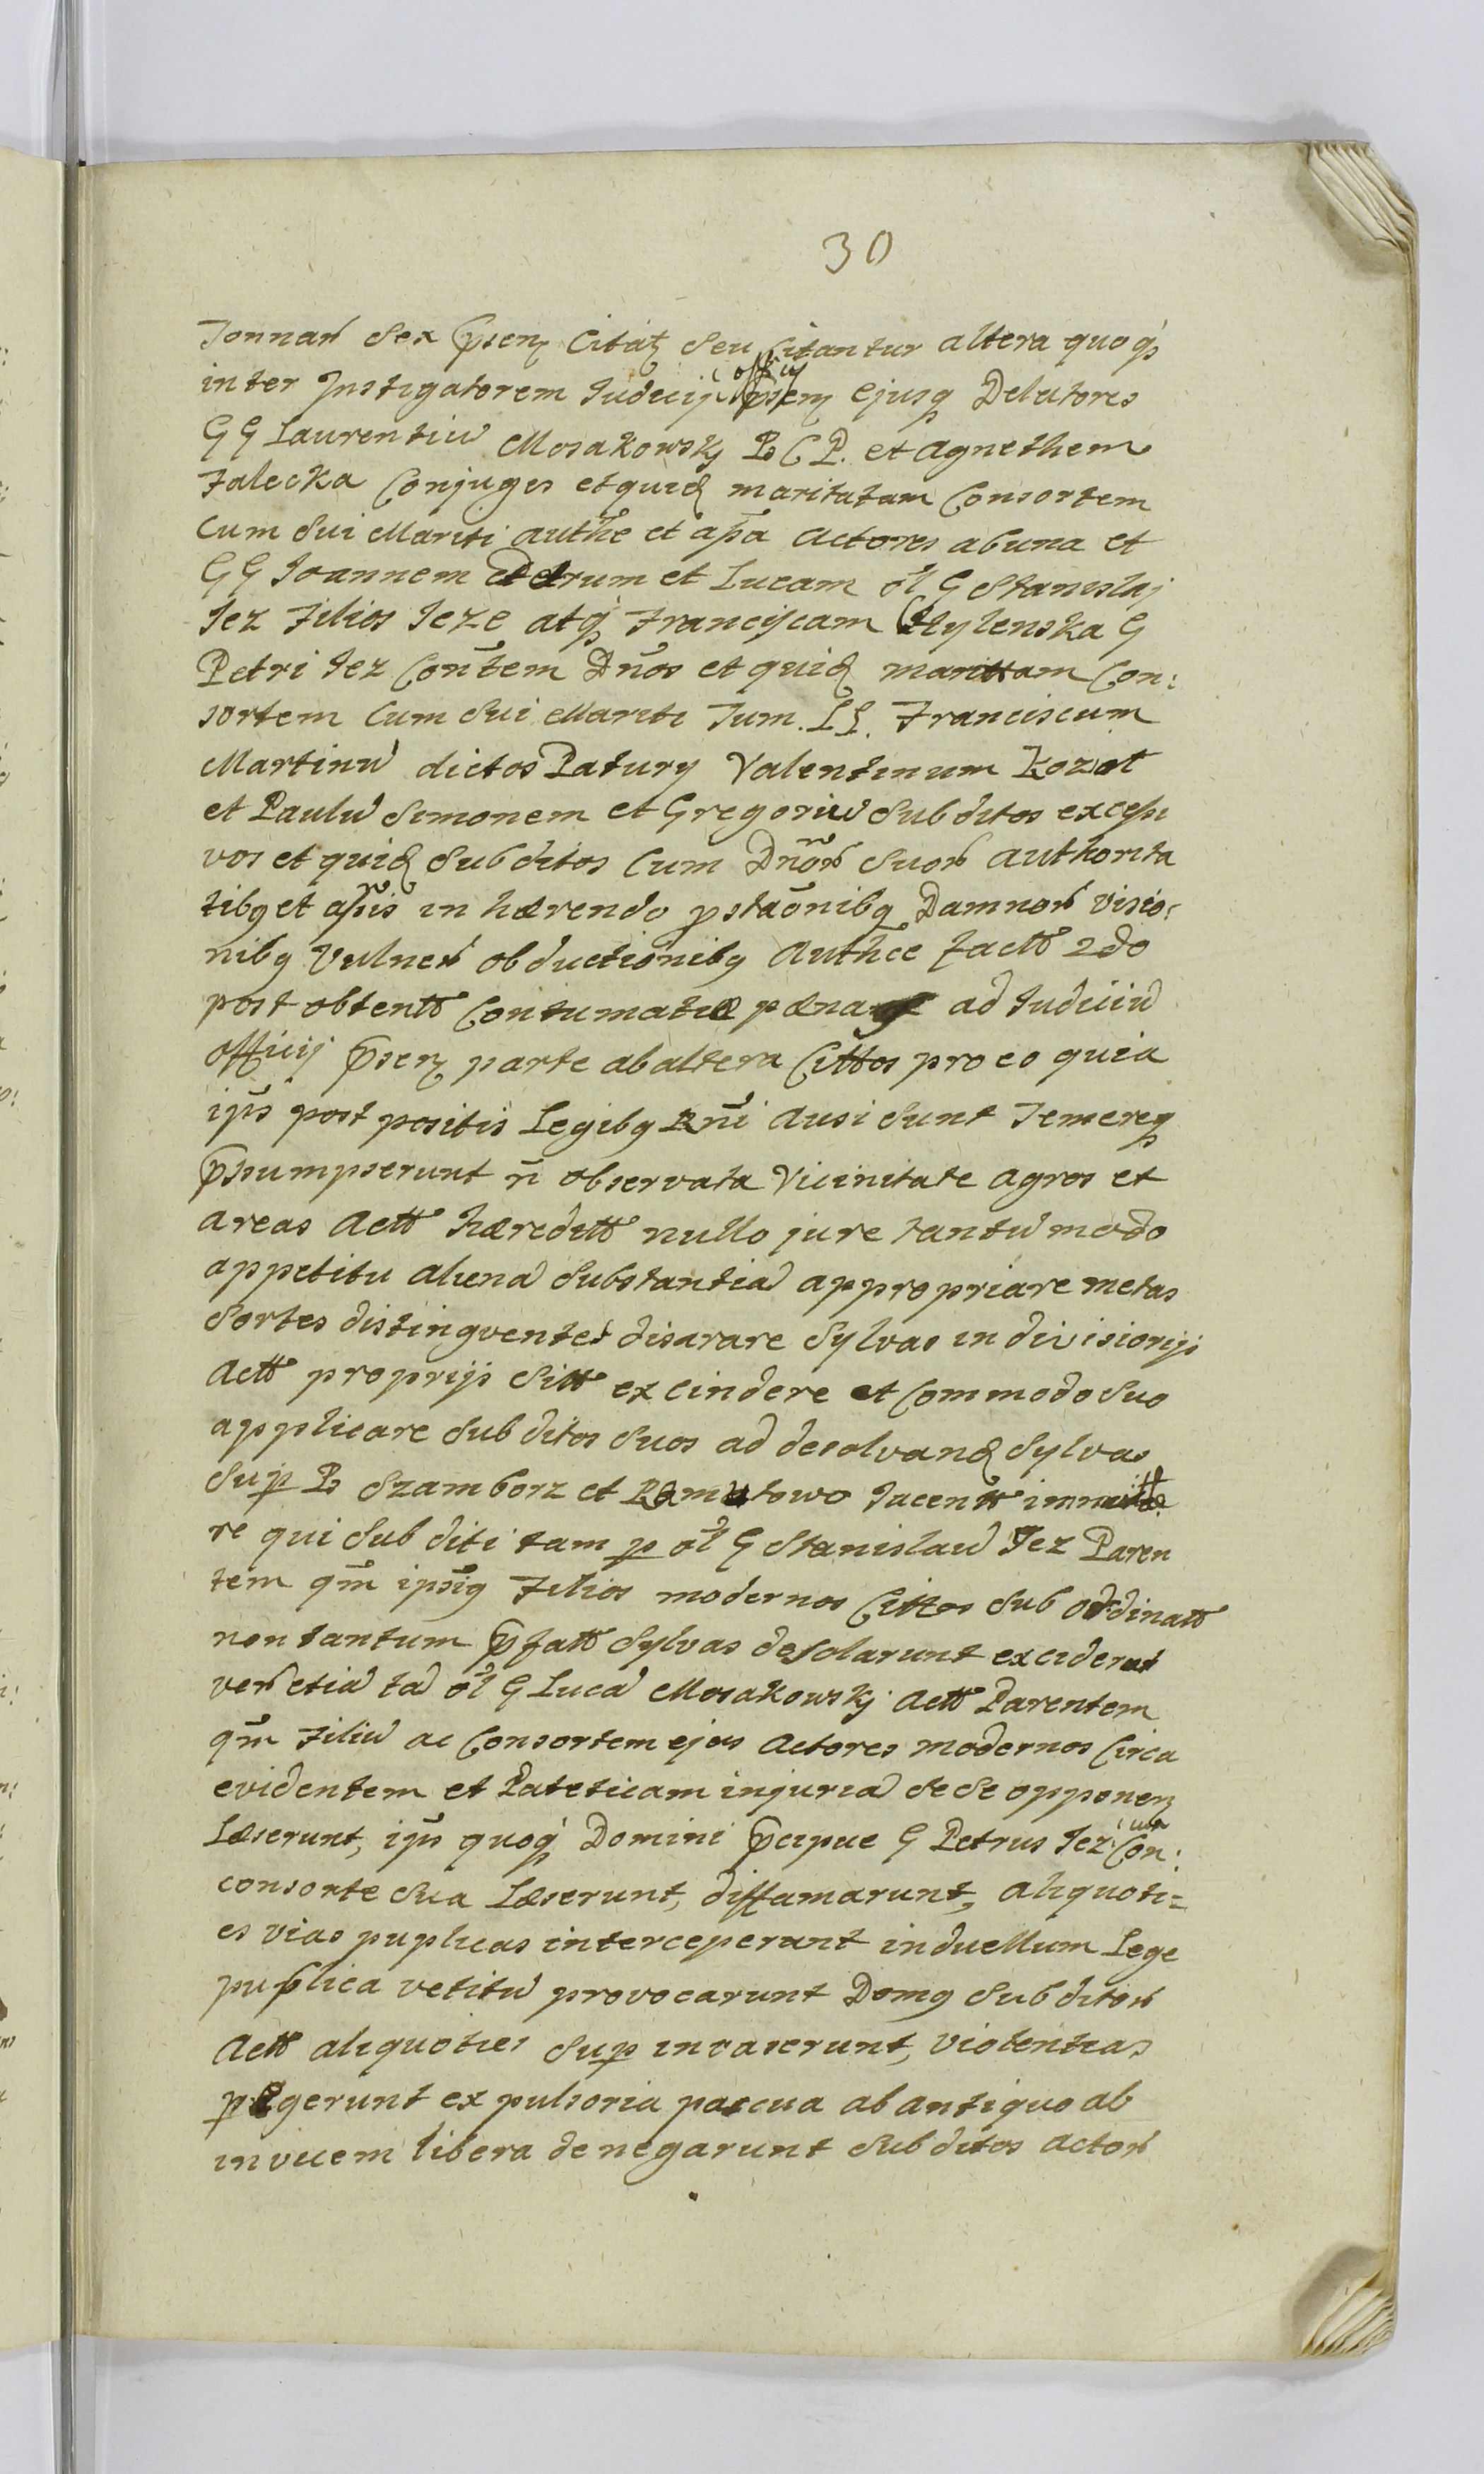 30
Tonnar Sex p̄sen Citat Seu Citantur altera quoq́
inter Instigatorem Iudicij officij p̄sen Ejusq Delatores
G G Laurentiū Mosakowskj B C P. et Agnethem
Falecka Conjuges et quid maritatam Consortem
Cum Sui Mariti auth̄e et ap̄a Actores ab una et
G G Ioannem Petrum et Lucam ol̄ G Stanislaj
Iez Filios Ieze atq́ Francijcam Stylenska G
Petri Iez Con̄tem Dn̄os et quid marittam Con:
sortem Cum Sui Mariti Tum. LL. Franciscum
Martinū dictos Patury Valentinum Kozat
et Paulū Simonem et Gregoriū Subditos excessi
vos et quid Subditos Cum Dn̄oR Suor Authorita
tibq et ap̄is in hærendo p stāonibq Damnor visio:
nibq Vulner obductionibq Auth̄ce factt 2do
post obtentt Contumatiæ pæna ad Iudiciū
officij p̄sen parte ab altera Cittos pro eo quia
ip̄s post positis Legibq Rn̄i Ausi Sunt Temereq
p̄sumpserunt n̄ observata Vicinitate Agros et
areas Actt hæreditt nullo jure tantū modo
appetitu alienā Substantiā appropriare metas
Sortes distingventes disarare Sylvas in divisionjs
Actt proprijs Sitt excindere et Commodo Suo
applicare Subditos Suos ad desolvand Sylvas
Sup B Szamborz et Romatowo Iacentt immitte
re qui Subditi tam p ol̄ G Stanislaū Iez Paren
tem qm̄ ipsiq Filios modernos Cittos Sub ordinatt
non tantum p̄fatt Sylvas desolarunt exciderunt
ver etiā tā ol̄ G Lucā Mosakowskj Actt Parentem
qm̄ Filiū ac Consortem ejus Actores modernos Circa
evidentem et Pateticam injuriā Se Se opponen
Læserunt, ip̄s quoq́ Domini p̄cipue G Petrus Iez cum Con:
consorte Sua Læserunt, diffamarunt, aliquoti=
es vias puplicas interceperunt in duellum Lege
puplica vetitū provocarunt Domq Subditor
Actt aliquoties Sup invaserunt, violentias
p egerunt ex pulsoria pascua ab antiquo ab
in vicem libera denegarunt Subditos Actor